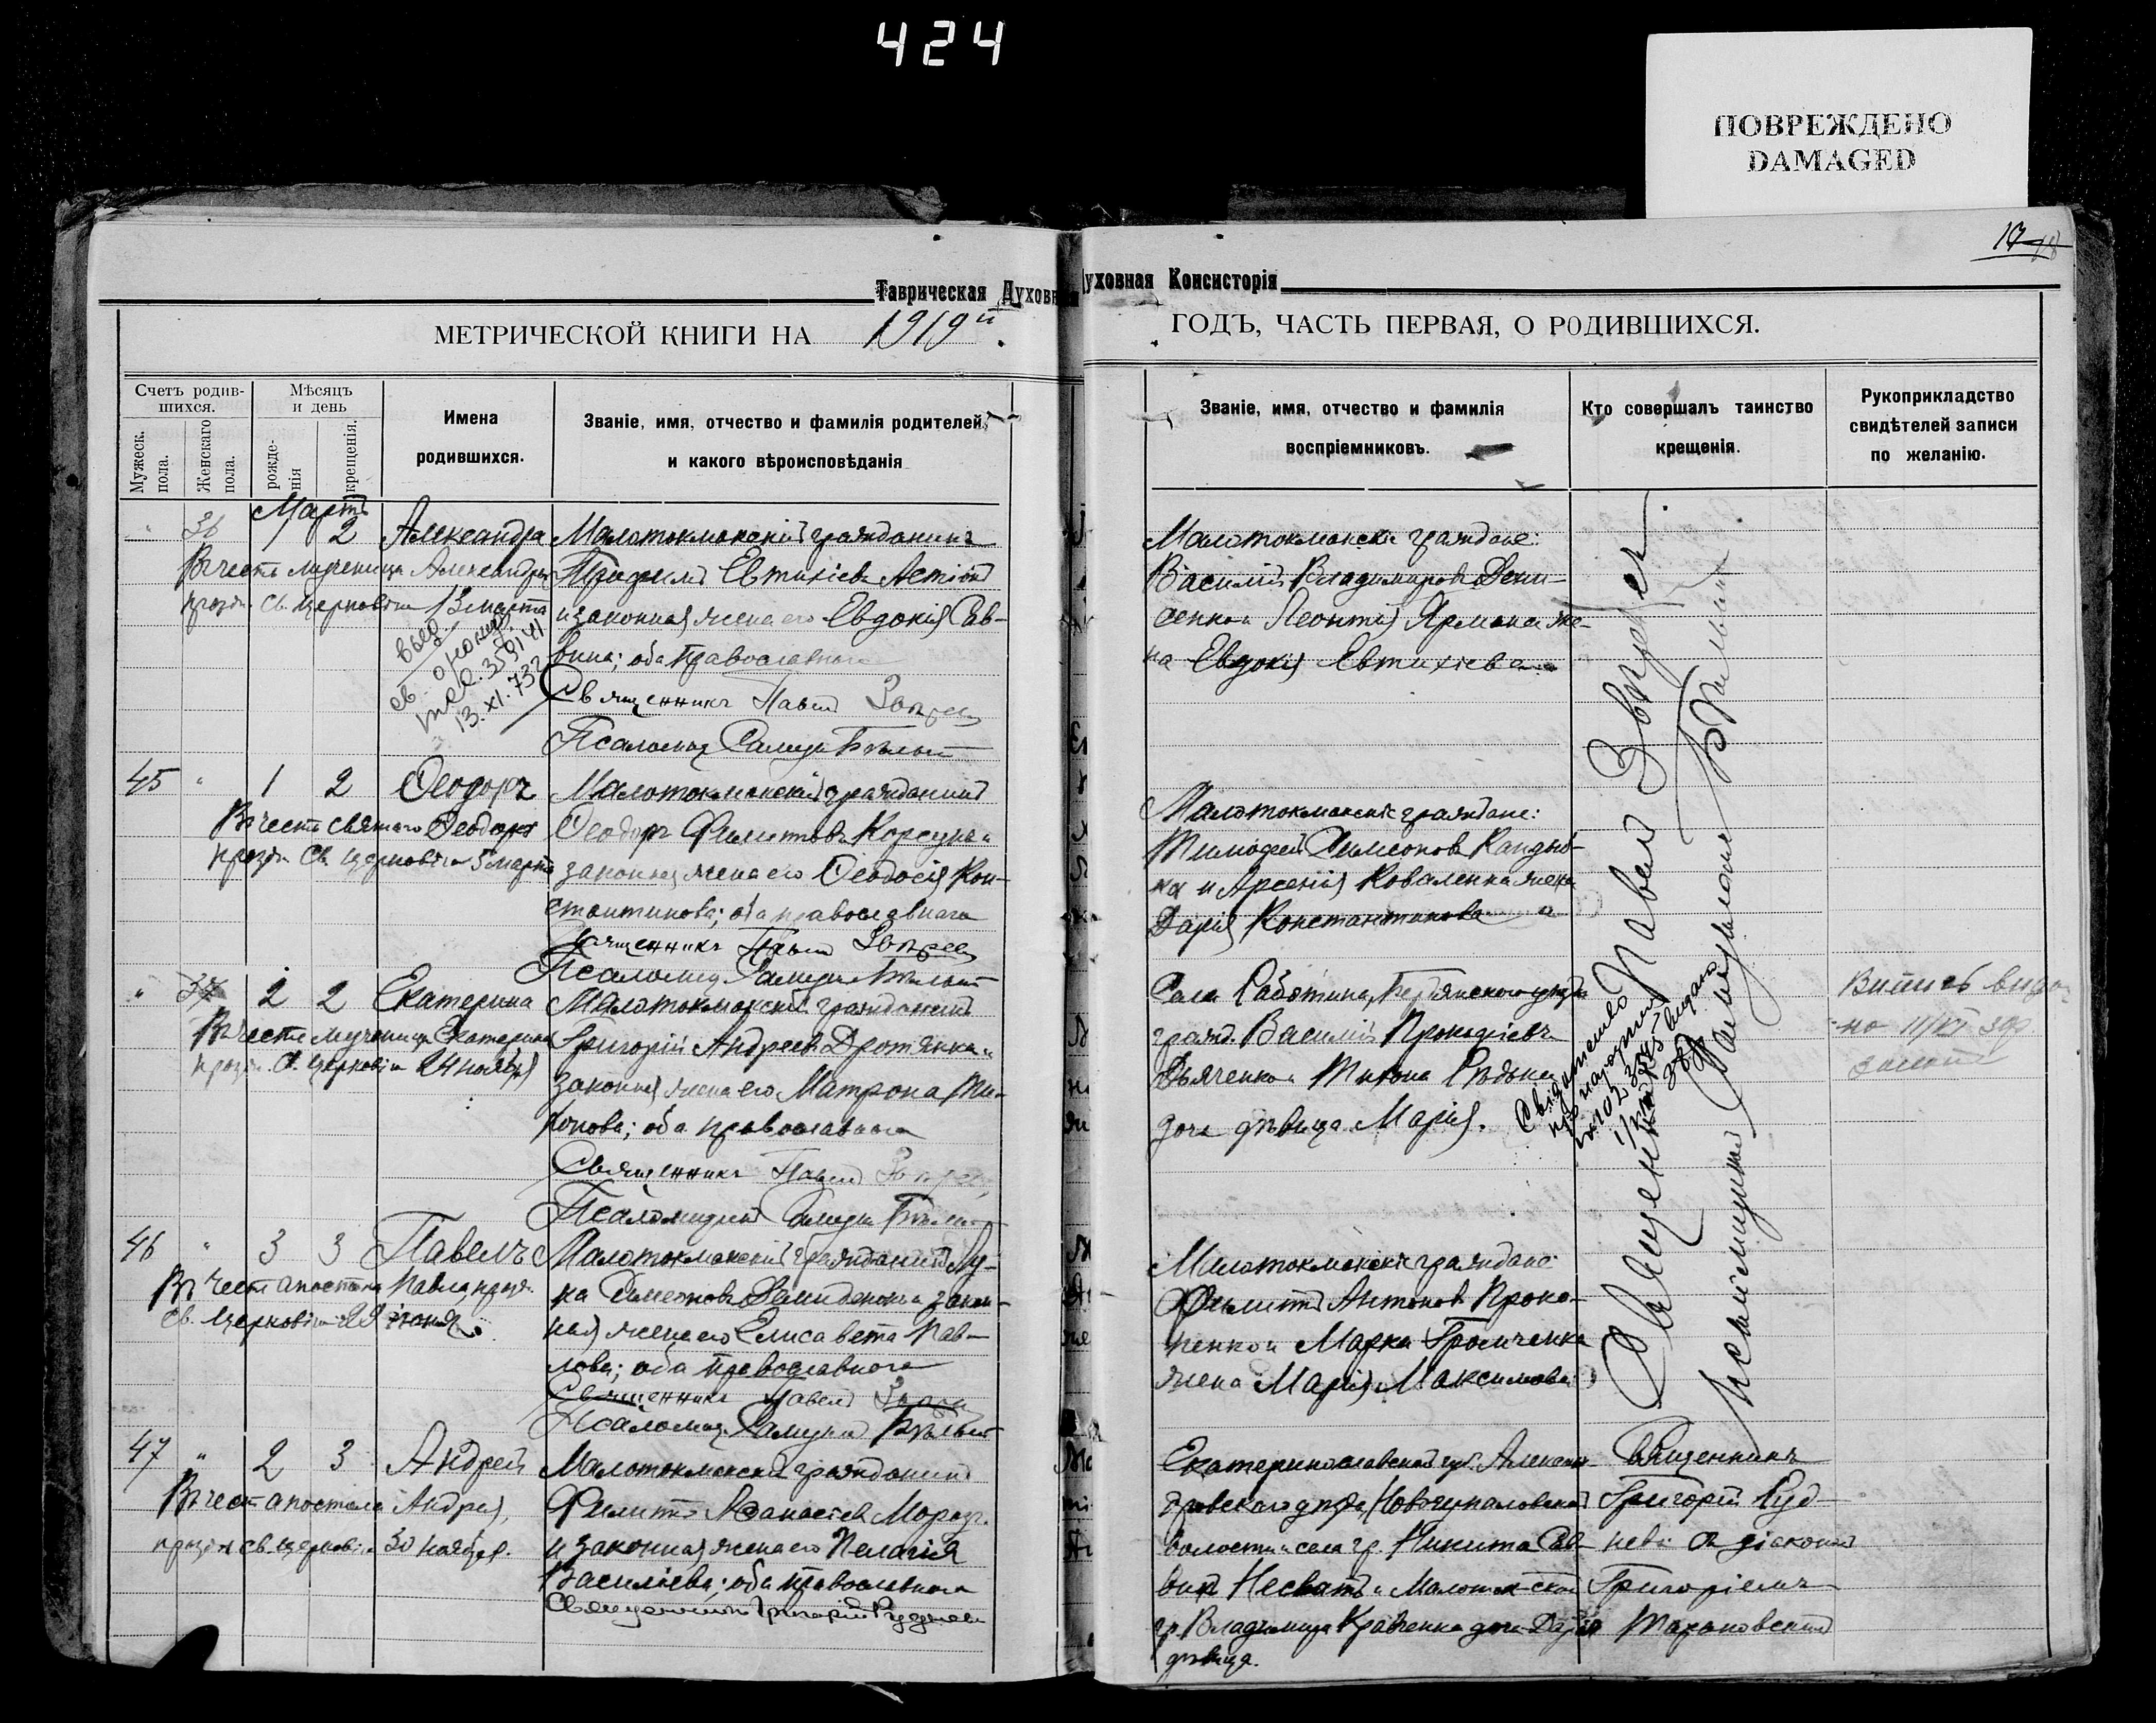 424
ПОВРЕЖДЕНО
DAMAGED
Таврическая Духовная Консисторія
МЕТРИЧЕСКОЙ КНИГИ НА 1919й ГОДЪ, ЧАСТЬ ПЕРВАЯ, О РОДИВШИХСЯ.
Счетъ родив-
шихся.
Мужеск. пола.
Женскаго пола.
Мѣсяцъ
и день
рожде-
нія
крещенія.
Имена
родившихся.
Званіе, имя, отчество и фамилія родителей,
и какого вѣроисповѣданія
Званіе, имя, отчество и фамилія
воспріемниковъ.
Кто совершалъ таинство
крещенія.
Рукоприкладство
свидѣтелей записи
по желанію.
Мартъ
" 36 1 2 Александра
Въ честь мученицы Александры
празн. Св. Церковію 13 марта
13.XI.732
Малотокмакскій гражданинъ
Евтихіевъ
и законная жена его Евдокія Сав-
вина; оба православнаго
Священникъ Павелъ
Псаломщ. Самуилъ Бѣлый
Малотокмакскіе граждане:
Василій Владимировъ Дени-
сенко и Леонтія Ярмака же-
на Евдокія Евтихіева
45 " 1 2 Ѳеодоръ
Въ честь святаго Ѳеодора
празн. Св. Церковію 5 марта
Малотокмакскій гражданинъ
Ѳеодоръ Филипповъ Корсунъ и
законная жена его Ѳеодосія Кон-
стантинова; оба православнаго
Священникъ Павелъ
Псаломщ. Самуилъ Бѣлый
Малотокмакскіе граждане:
Тимофей Симеоновъ Кандыб-
ка и Арсенія Коваленка жена
Дарія Константинова
" 37 2 2 Екатерина
Въ честь мученицы Екатерины
празн. Св. Церковію 24 ноября
Малотокмакскій гражданинъ
Григорій Андреевъ Дротянка и
законная жена его Матрона Ти-
хонова; оба православнаго
Священникъ Павелъ
Псаломщикъ Самуилъ Бѣлый
Села Работина, Бердянскаго уѣзда
гражд. Василій Прокофіевъ
Дьяченко и Тихона Рѣдьки
дочь дѣвица Марія.
46 " 3 3 Павелъ
Въ честь апостола Павла празн.
Св. Церковію 29 іюня
Малотокмакскій гражданинъ Лу-
ка Симеоновъ Демиденко и закон-
ная жена его Елисавета Пав-
лова; оба православнаго
Священникъ Павелъ
Псаломщ. Самуилъ Бѣлый
Малотокмакскіе граждане:
Филиппъ Антоновъ Проко-
пенко и Марка Громченка
жена Марія Максимова
Священникъ Павелъ
Псаломщикъ Самуилъ Бѣлый
47 " 2 3 Андрей
Въ честь апостола Андрея,
празн. св. церковію 30 ноября.
Малотокмакскій гражданинъ
Филиппъ Аѳанасіевъ Морозъ
и законная жена его Пелагія
Васильева; оба православнаго
Священникъ Григорій Рудневъ
Екатеринославской губ. Алексан-
дровскаго уѣзда, Новогупаловской
волости и села гр. Никита Сав-
винъ Несватъ и Малоток-ской
гр. Владимира Кравченка дочь Дарія
дѣвица.
Священникъ
Григорій Руд-
невъ съ діакономъ
Григоріемъ
Тарановскимъ